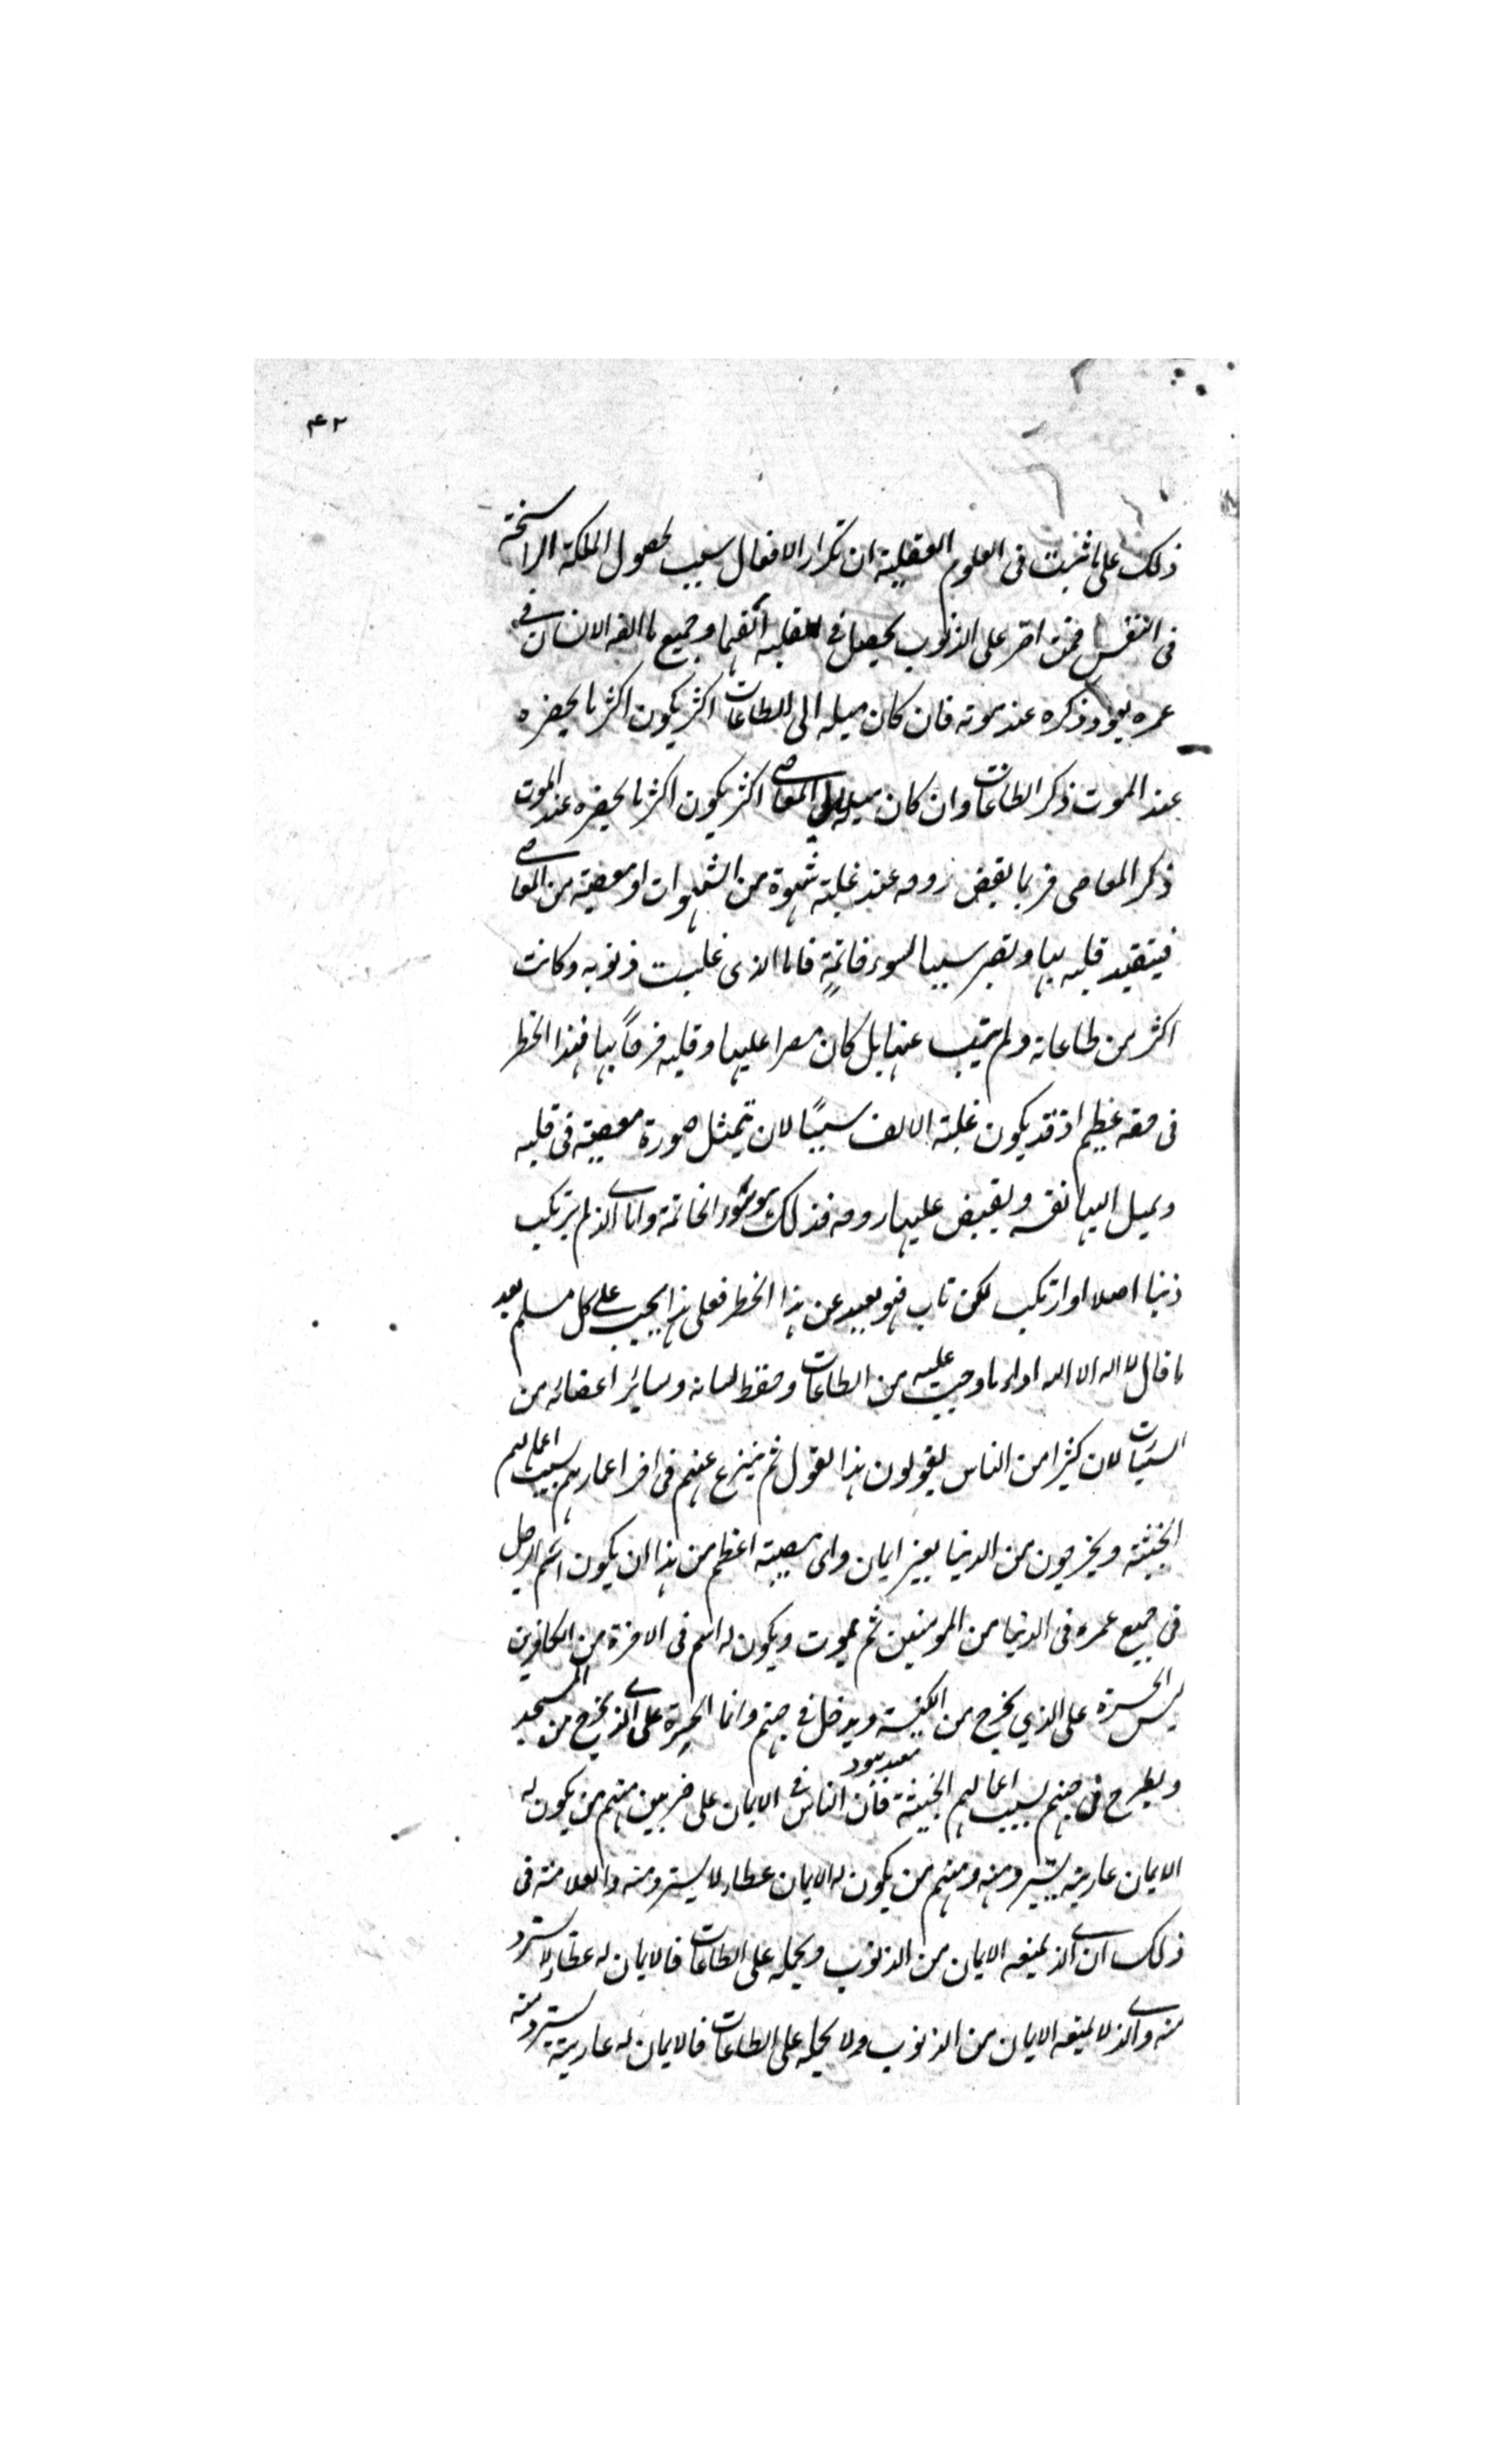 ٤٢
ذلك على ما ثبت فى العلوم العقلية ان تكرار الافعال سبب لحصول الملكة الراسخة
فى النفس فمن اصر على الذنوب يحصل فى قلبه الفها وجميع ما الفه الانسان فى
عمره يعود ذكره عند موته فان كان ميله الى الطاعات اكثر يكون اكثر ما يحضره
عند الموت ذكر الطاعات وان كان ميله الى المعاصى اكثر يكون اكثر ما يحضره عند الموت
ذكر المعاصى فربما يقبض روحه عند غلبة شهوة من الشهوات او معصية من المعاصى
فيتقيد قلبه بها وتصير سببا لسوء خاتمة فاما الذى غلبت ذنوبه وكانت
اكثر من طاعاته ولم يتب عنها بل كان مصرا عليها وقلبه فرحاً بها فهذا الخطر
فى حقه عظيم اذ قد يكون غلبة الالف سببًا لان تتمثل صورة معصية فى قلبه
ويميل اليها نفسه ويقبض عليها روحه فذلك هو سوء الخاتمة واما الذى لم يرتكب
ذنبا اصلا او ارتكب لكن تاب فهو بعيد عن هذا الخطر فعلى هذا يجب على كل مسلم بعد
ما قال لا اله الا الله اداء ما وجب عليه من الطاعات وحفظ لسانه وسائر اعضائه من
السيئات لان كثيرا من الناس يقولون هذا القول ثم ينزع عنهم فى اخر اعمارهم بسبب اعمالهم
الخبيثة ويخرجون من الدنيا بغير ايمان واى مصيبة اعظم من هذا ان يكون اسم الرجل
فى جميع عمره فى الدنيا من المومنين ثم يموت ويكون له اسم فى الاخرة من الكافرين
ليس الحسرة على الذي يخرج من الكنيسة ويدخل فى جهنم وانما الحسرة على الذى يخرج من المسجد
ويطرح فى جهنم بسبب اعمالهم الخبيثة فان الناس فى الايمان على ضربين منهم من يكون له
الايمان عارية يسترد منه ومنهم من يكون له الايمان عطاء لا يسترد منه والعلامة فى
ذلك ان الذى يمنعه الايمان من الذنوب ويحمله على الطاعات فالايمان له عطاء لا يسترد
منه والذى لا يمنعه الايمان من الذنوب ولا يحمله على الطاعات فالايمان له عارية يسترد منه